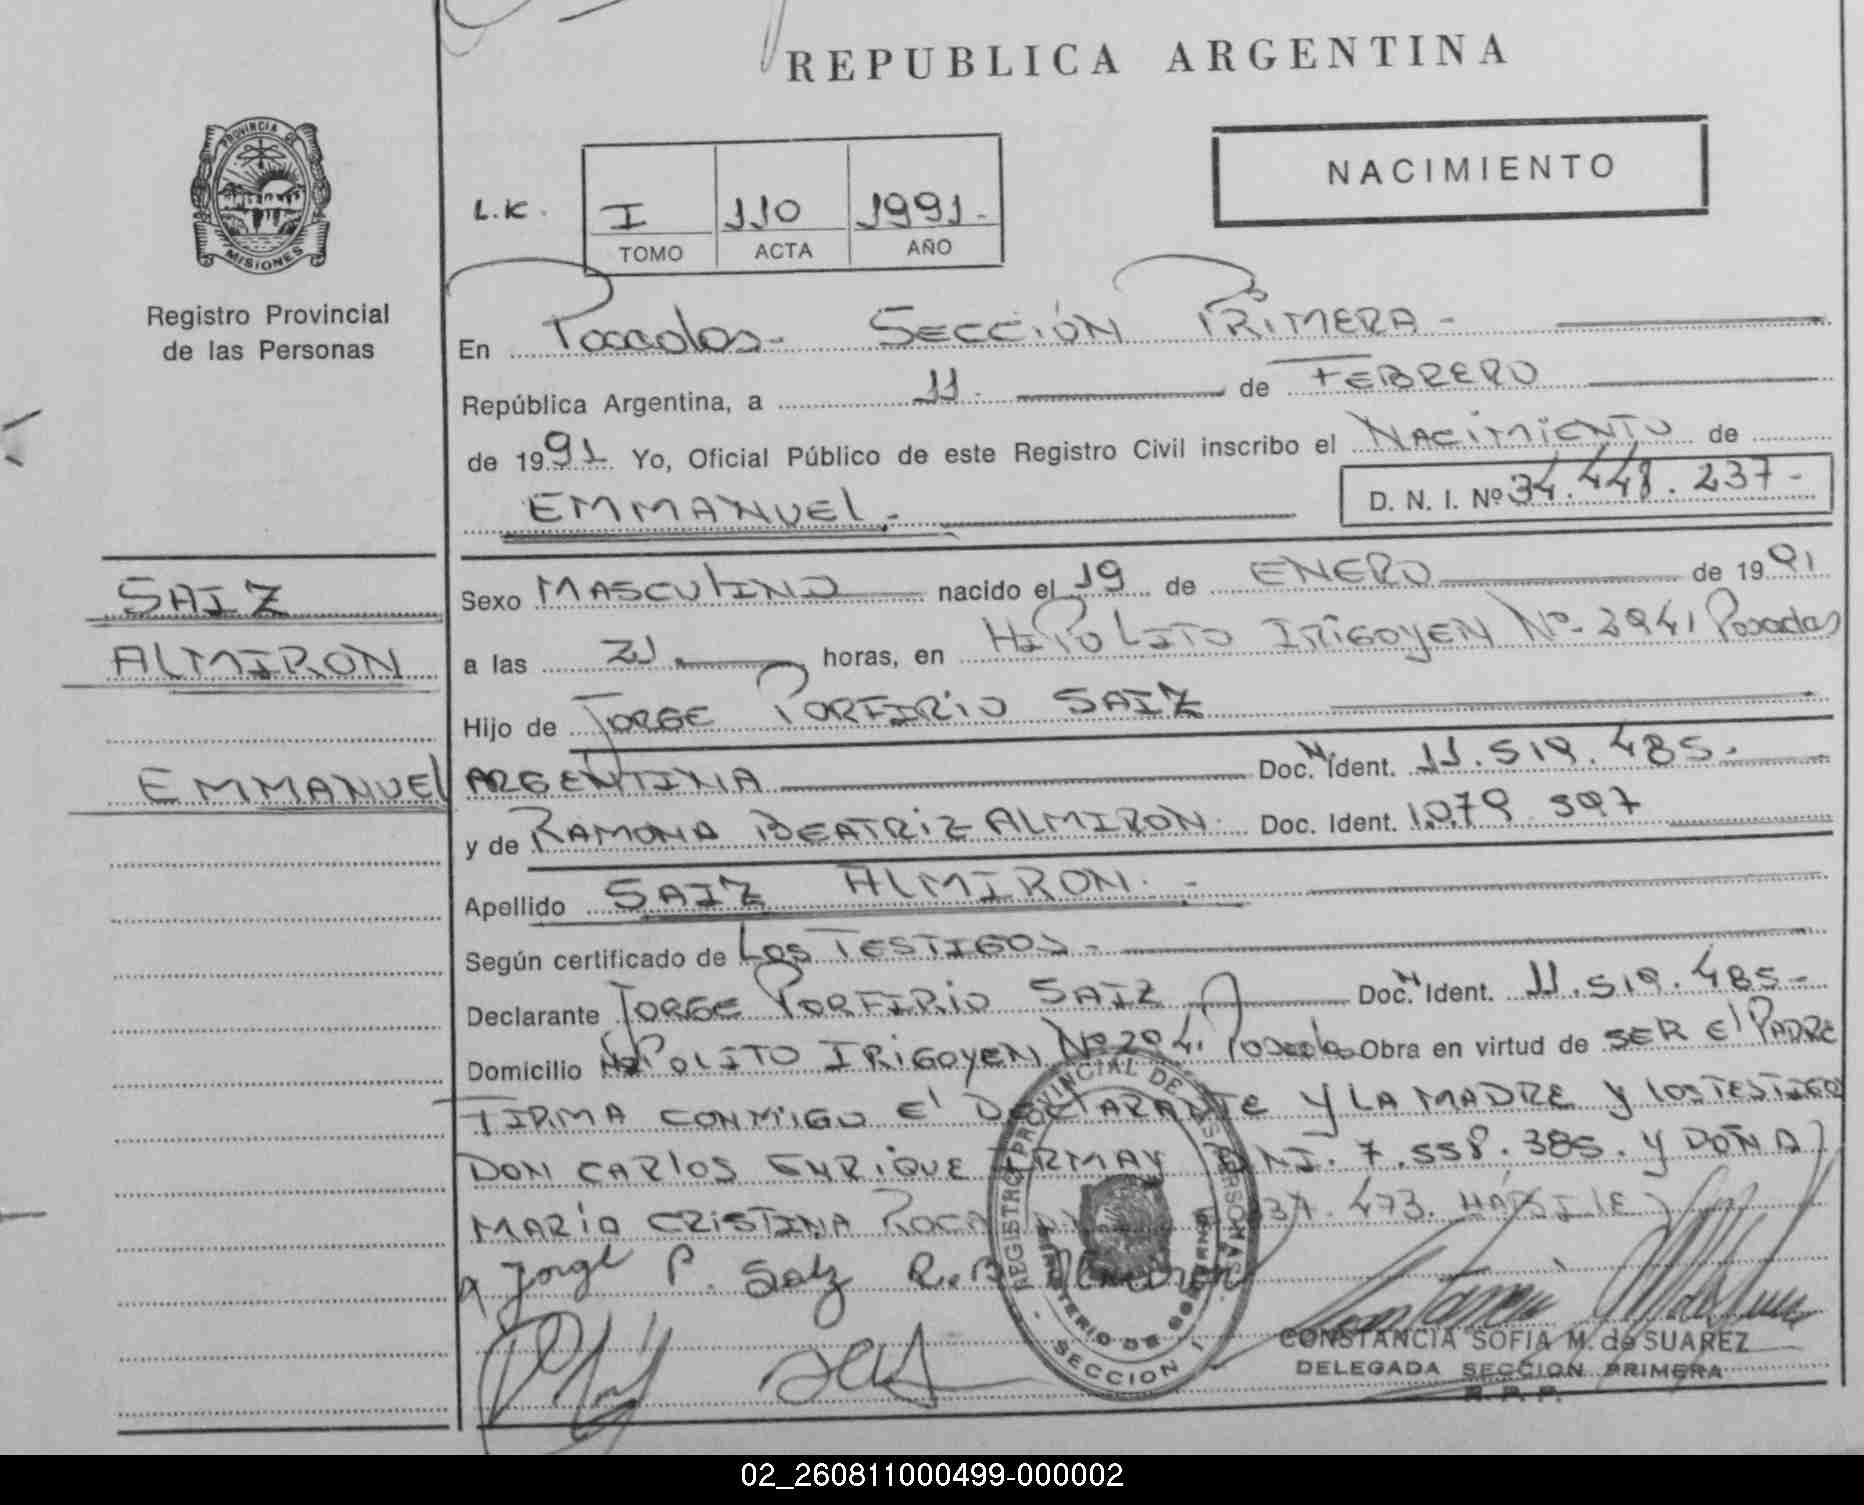 REPUBLICA ARGENTINA
PROVINCIA DE
MISIONES
Registro Provincial
de las Personas
NACIMIENTO
L.K. I 110 1991.-
TOMO ACTA AÑO
En Posadas- SECCIÓN PRIMERA-
República Argentina, a 11. de FEBRERO
de 1991. Yo, Oficial Público de este Registro Civil inscribo el NACIMIENTO de
EMMANUEL.- D. N. I. Nº 34.448.237-
SAIZ
ALMIRON
EMMANUEL
Sexo MASCULINO nacido el 19 de ENERO de 1991
a las 21. horas, en HIPOLITO IRIGOYEN Nº- 2941 Posadas
Hijo de JORGE PORFIRIO SAIZ
ARGENTINA Doc. N. Ident. 11.519.485.-
y de RAMONA BEATRIZ ALMIRON. Doc. Ident. 1.079.597
Apellido SAIZ ALMIRON.-
Según certificado de LOS TESTIGOS-
Declarante JORGE PORFIRIO SAIZ Doc. N. Ident. 11.519.485-
Domicilio HIPOLITO IRIGOYEN Nº 2941 Posadas Obra en virtud de SER El PADRE
FIRMA CONMIGO El DECLARANTE Y LA MADRE y LOS TESTIGOS
DON CARLOS ENRIQUE DNI. 7.558.385. y DOÑA
MARÍA CRISTINA ROCA 473. HÁBILES
Jorge P. Saiz R.B. Almiron
REGISTRO PROVINCIAL DE LAS PERSONAS
MINISTERIO DE GOBIERNO
- SECCION I -
CONSTANCIA SOFIA M. de SUAREZ
DELEGADA SECCION PRIMERA
R. P. P.
02_260811000499-000002